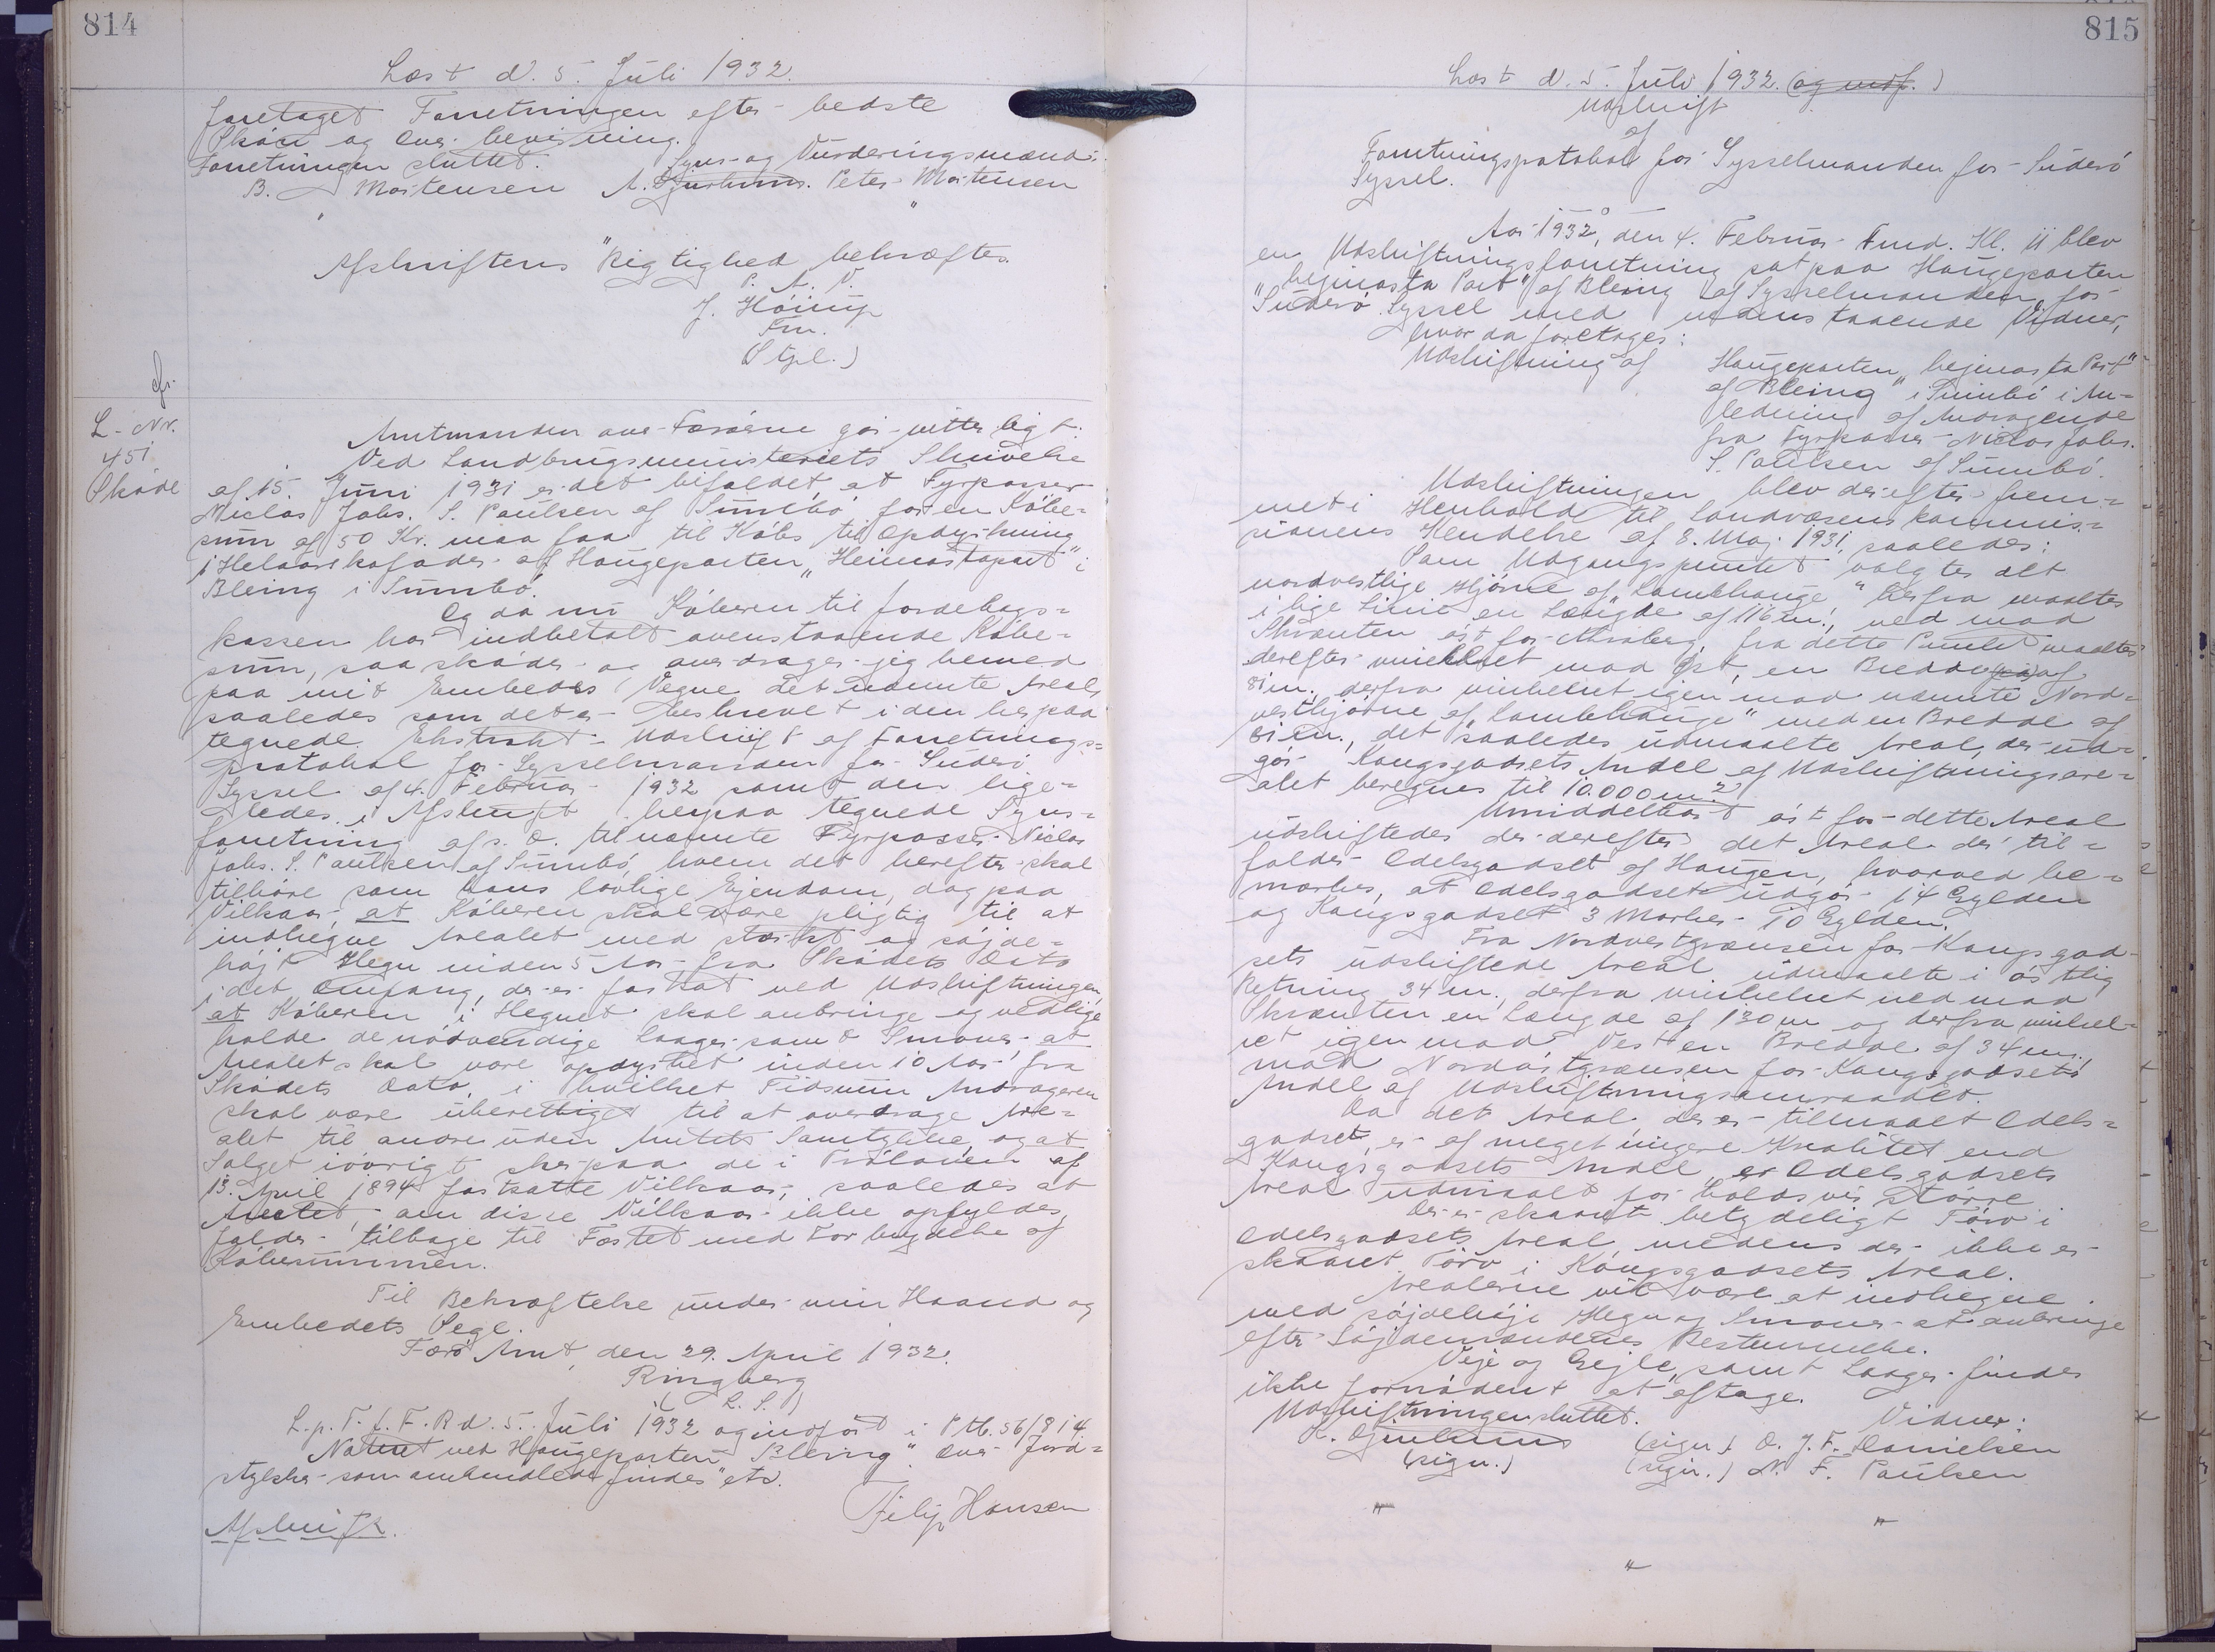 814
Læst d. 5. Juli 1932.
foretaget Forretningen efter bedste
Skøn og Overbevisning.
Forretningen sluttet. Syns- og Vurderingsmænd:
B. Mortensen A. Djurhuus. Peter Mortensen
" "
Afskriftens Rigtighed bekræftes.
P. A. V.
J. Høirup
Fm.
Stpl.)
L-Nr.
451
Skøde
Amtmanden over Færøerne gør vitterligt:
Ved Landbrugsministeriets Skrivelse
af 15. Juni 1931 er det bifaldet, at Fyrpasser
Niclas Johs. S. Paulsen af Sumbø for en Købe-
sum af 50 Kr. maa faa til Købs til Opdyrkning
1 Helaarskofoder af Haugeparten "Heimastapart" i
Bleing i Sumbø.
Og da nu Køberen til Jordebogs-
kassen har indbetalt ovenstaaende Købe-
sum, saa skøder og overdrager jeg herved
paa mit Embeds Vegne det nævnte Areal,
saaledes som det er beskrevet i den herpaa
tegnede Ekstrakt-Udskrift af Forretnings-
protokol for Sysselmanden for Suderø
Syssel af 4. Februar 1932 samt den lige-
ledes i Afskrift herpaa tegnede Syns-
forretning af s. D. til nævnte Fyrpasser Niclas
Johs. S. Paulsen af Sumbø, hvem det herefter skal
tilhøre som hans lovlige Ejendom, dog paa
Vilkaar, at Køberen skal være pligtig til at
indhegne Arealet med stærkt og søjde-
højt Hegn inden 5 Aar fra Skødets Dato
i det Omfang, der er fastsat ved Udskiftningen,
at Køberen i Hegnet skal anbringe og vedlige
holde de nødvendige Laager samt Smover, at
Arealet skal være opdyrket inden 10 Aar fra
Skødets Dato, i hvilket Tidsrum Andrageren
skal være uberettiget til at overdrage Are-
alet til andre uden Amtets Samtykke, og at
Salget iøvrigt sker paa de i Frøloven af
13. April 1894 fastsatte Vilkaar, saaledes at
Arealet, om disse Vilkaar ikke opfyldes,
falder tilbage til Fæstet med Fortabelse af
Købesummen.
Til Bekræftelse under min Haand og
Embedets Segl.
Færø Amt, den 29. April 1932.
Ringberg
(L. S.)
L. p. T. f. F. R d. 5. Juli 1932 og indført i Ptb. S6/814
Noteret ved Haugeparten "Bleing". Over Jord-
stykker som ombundlede findes" etc.
Filip Hansen
Afskrift.
815
Læst d. 5. Juli 1932. (og indf.)
Udskrift
af
Forretningsprotokol for Sysselmanden for Suderø
Syssel.
Aar 1932, den 4. Februar Fmd. Kl. 11 blev
en Udskiftningsforretning sat paa Haugeparten
"hejmasta Part" af Bleing af Sysselmanden for
Suderø Syssel med undenstaaende Vidner,
hvor da foretoges:
Udskiftning af Haugeparten "hejmasta Part"
af Bleing" i Sumbø i An-
ledning af Andragende
fra Fyrpasser Niclas Johs.
S. Paulsen af Sumbø.
Udskiftningen blev derefter frem-
met i Henhold til Landvæsenskommis-
sionens Kendelse af 8. Maj 1931, saaledes:
Som Udgangspunkt valgtes det
nordvestlige Hjørne af "Lambhauge" herfra maaltes
i lige Linie en Længde af 116 m., ned mod
Skrænten øst for Akraberg, fra dette Punkt maaltes
derefter vinkelret mod Øst, en Bredde af
81 m. derfra vinkelret igen mod nævnte Nord-
vesthjørne af "Lambhauge" med en Bredde af
81 m., det saaledes udmaalte Areal, der ud-
gør Kongsgodsets Andel af Udskiftningsare-
alet beregnes til 10.000 m².
Umiddelbart øst for dette Areal
udskiftedes der derefter det Areal der til-
falder Odelsgodset af Haugen, hvorved be-
mærkes, at Odelsgodset udgør 14 Gylden
og Kongsgodset 3 Marker 10 Gylden.
Fra Nordvestgrænsen for Kongsgod-
sets udskiftede Areal udmaalte i østlig
Retning 34 m., derfra vinkelret ned mod
Skrænten en Længde af 130 m og derfra vinkel-
ret igen mod Vest en Bredde af 34 m.,
mod Nordøstgrænsen for Kongsgodsets
Andel af Udskiftningsomraadet.
Da det Areal, der er tilmaalt Odels-
godset, er af meget ringere Kvalitet end
Kongsgodsets Andel, er Odelsgodsets
Areal udmaalt forholdsvis større.
Der er skaaret betydeligt Tørv i
Odelsgodsets Areal, medens der ikke er
skaaret Tørv i Kongsgodsets Areal.
Arealerne vil være at indhegne
med søjdehøje Hegn og Smover at anbringe
efter Søjdemændenes Bestemmelse.
Veje og Gejle, samt Laager findes
ikke fornødent at aftage.
Udskiftningen sluttet. Vidner:
K. Djurhuus (sign.) O. J. F. Danielsen
(sign.) (sign.) N. F. Paulsen
" "
"